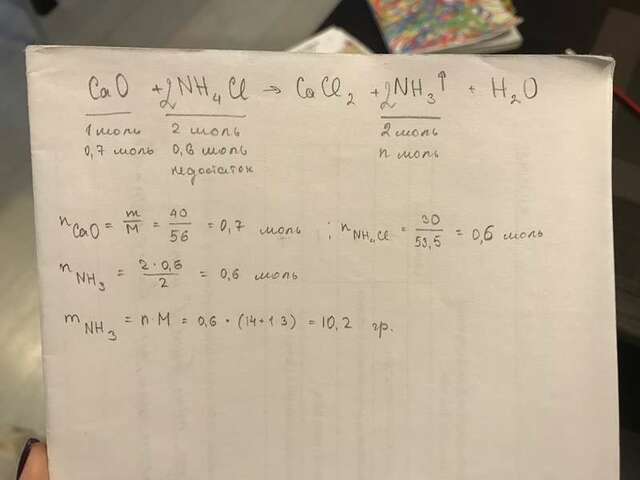 CaO + 2NH₄Cl → CaCl₂ + 2NH₃↑ + H₂O
1 моль 2 моль 2 моль
0,7 моль 0,6 моль n моль
недостаток
n CaO = m/M = 40/56 = 0,7 моль ; n NH₄Cl = 30/53,5 = 0,6 моль
n NH₃ = 2·0,6/2 = 0,6 моль
m NH₃ = n M = 0,6 · (14+1·3) = 10,2 гр.